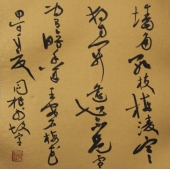 墙角数枝梅凌寒
独自开遥知不是雪
为有暗香来王安石梅花